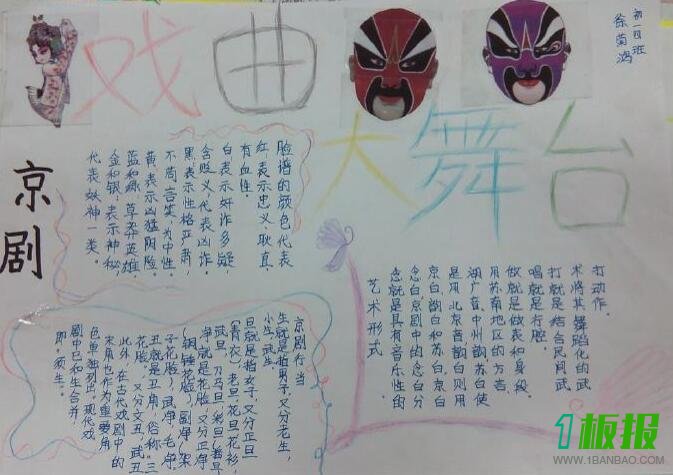 戏曲
大舞台
初一四班
徐菊
京剧
脸谱的颜色代表
红:表示忠义、耿直、
有血性。
白:表示奸诈多疑,
含贬义代表凶诈。
黑:表示性格严肃,
不苟言笑,为中性。
黄:表示凶猛阴险
蓝和绿:草莽英雄
金和银:表示神秘
代表妖神一类。
艺术形式
念就是具有音乐性的
念白,京剧中的念白分
京白、韵白和苏白,京白
是用北京音,韵白则用
湖广音、中州韵,苏白使
用苏南地区的方言。
做就是做表和身段。
唱就是行腔。
打就是结合民间武
术将其舞蹈化的武
打动作。
京剧行当
生就是指男子,又分老生,
小生,武生
旦就是指女子,又分正旦
(青衣)老旦,花旦,花衫,
武旦,刀马旦,彩旦
净就是花脸,又分正净
(铜锤花脸),副净(架
子花脸),武净,毛净
丑就是丑角,俗称“三
花脸”,又分文丑,武丑
此外,在古代戏剧中的
末角也作为重要角
色单独列出,现代戏
剧中已和生合并,
即:须生。
1板报
WWW.1BANBAO.COM